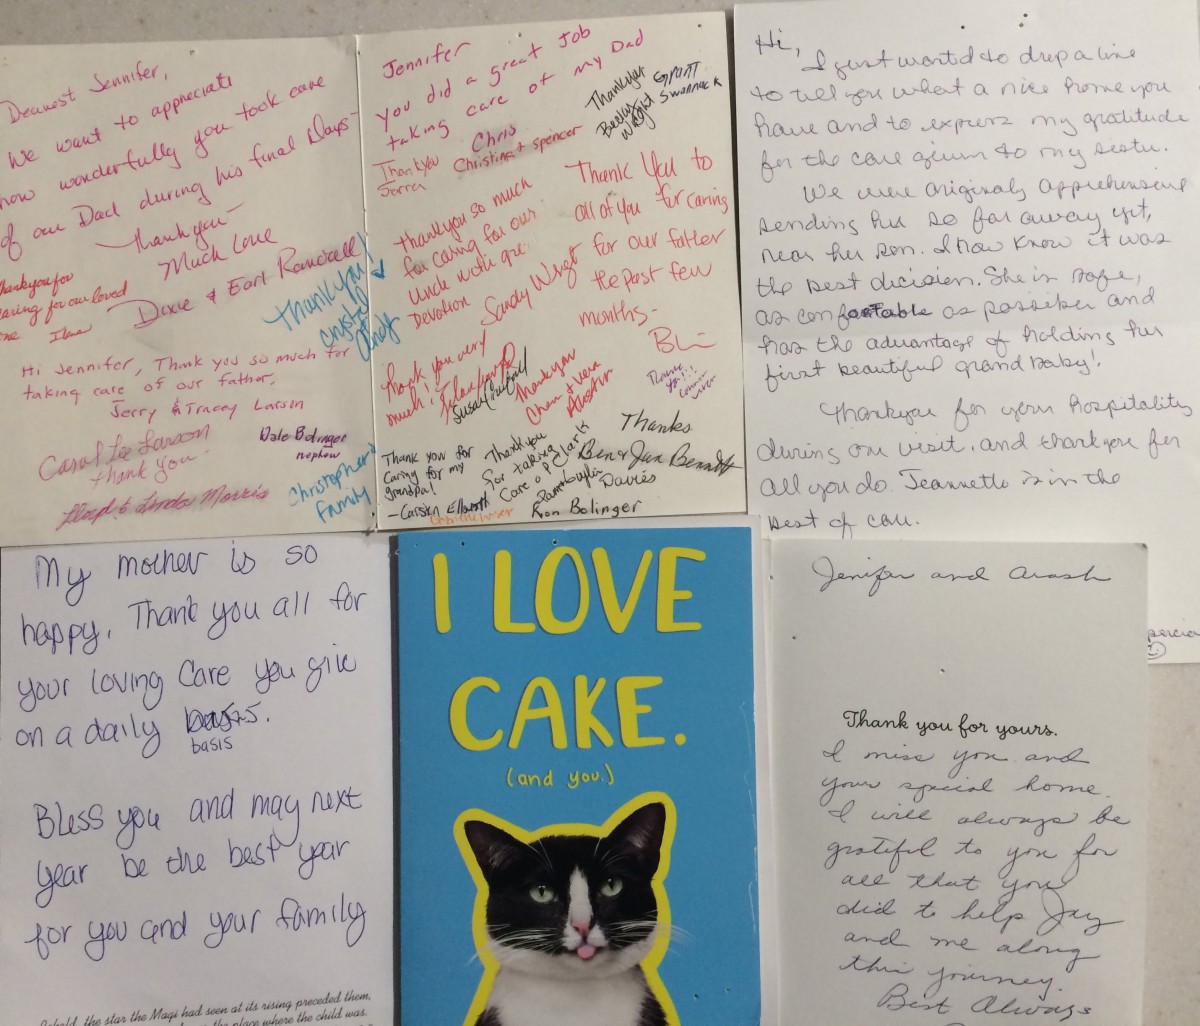 Dearest Jennifer,
We want to appreciate
how wonderfully you took care
of our Dad during his final Days-
Thank you-
Much Love
Dixie & Earl Randall
Thank you for
caring for our loved
one
Hi Jennifer, Thank you so much for
taking care of our father.
Jerry & Tracey Larson
Carol Lee Larson
thank you-
Dale Bolinger
nephew
Lloyd & Linda Morris
Thank you!
Christopher &
Family
Jennifer
you did a great Job
taking care of my Dad
Thank you
Chris
Christina & Spencer
Thank you
Becky
Wright
Grant
Swannack
Thank you so much
for caring for our
Uncle with
Devotion
Sandy Wright
Thank You to
all of you for caring
for our father
the past few
months-
Thank you very
much!
Thank you
Thank
you!!
Thank you for
caring for my
grandpa!
-Carsyn Ellsworth
Thank you
for taking
care of Clark
Thanks
Ben & Jan Bennett
Davies
Ron Bolinger
Hi,
I just wantd to drop a line
to tell you what a nice home you
have and to express my gratitude
for the care given to my sister.
We were originaly apprehensive
sending her so far away yet,
near her son. I now know it was
the best decision. She is safe,
as comfortable as possible and
has the advantage of holding her
first beautiful grand baby!
Thankyou for your hospitality
during our visit, and thank you for
all you do. Jeannette is in the
best of care.
My mother is so
happy. Thank you all for
your loving care you give
on a daily basis.
basis
Bless you and may next
year be the best year
for you and your family
Behold, the star the Magi had seen at its rising preceded them,
the place where the child was.
I LOVE
CAKE.
(and you.)
Jenifer and Arash
Thank you for yours.
I miss you and
your special home.
I will always be
grateful to you for
all that you
did to help Jay
and me along
this journey.
Best Always